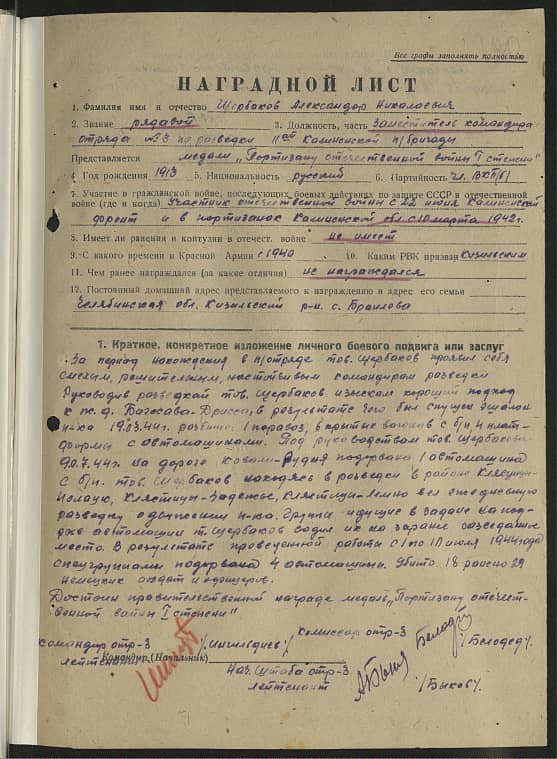 Все графы заполнять полностью
НАГРАДНОЙ ЛИСТ
1. Фамилия имя и отчество Щербаков Александр Николаевич
2. Звание рядовой 3. Должность, часть Заместитель командира
отряда №3 по разведки 11ой Калининской п/бригады
Представляется медали „Партизану отечественной войны I степени"
4. Год рождения 1913 5. Национальность русский 6. Партийность чл. ВКП/б/
7. Участие в гражданской войне, последующих боевых действиях по защите СССР и отечественной
войне (где и когда) Участник отечественной войны с 22 июня Калининский
фронт и в партизанах Калининской обл с 10 марта 1942г.
8. Имеет ли ранения и контузии в отечест. войне не имеет
9. С какого времени в Красной Армии с 1940 10. Каким РВК призван Кизильским
11. Чем ранее награждался (за какие отличия) не награждался
12. Постоянный домашний адрес представляемого к награждению и адрес его семьи
Челябинская обл. Кизильский р-н с. Браилова
1. Краткое, конкретное изложение личного боевого подвига или заслуг
За период нахождения в п/отряде тов. Щербаков проявил себя
смелым, решительным, настойчивым командиром разведки
Руководив разведкой тов. Щербаков изыскал хороший подход
к ж.д. Боргосова-Дрисса, в результате чего был спущен эшалон
п-ка 19.03.44г. разбило: 1 паровоз, крытых вагонов с б/п, 4 плат-
формы с автомашинами. Под руководством тов. Щербакова
9.0.7.44г. на дороге -Рудня подорвана 1 автомашина
с б/п. тов. Щербаков находясь в разведки в районе Клястицы-
Клястицы- Клястицы- вел ежедневную
разведку движением п-ка. Группы идущие в задание на под-
рыв автомашин т. Щербаков водил их на заранее
место. В результате проведенной работы с 1 по 10 июля 1944 года
спецгруппами подорвана 4 автомашины. Убито 18 ранено 29
немецких солдат и офицеров.
Достоин правительственной награде медаль „Партизану отечест-
венной войны I степени"
Командир отр-3 Комиссар отр-3
лейтенант Командир (Начальник) /Белодед/
Нач. Штаба отр-3
лейтенант /Быков/